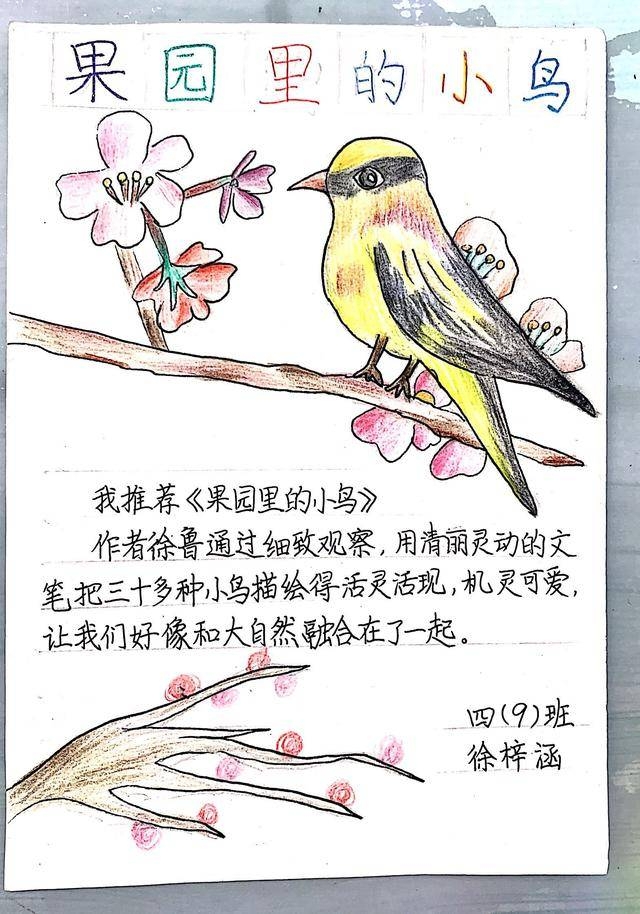 果园里的小鸟
我推荐《果园里的小鸟》
作者徐鲁通过细致观察，用清丽灵动的文
笔把三十多种小鸟描绘得活灵活现，机灵可爱，
让我们好像和大自然融合在了一起。
四(9)班
徐梓涵